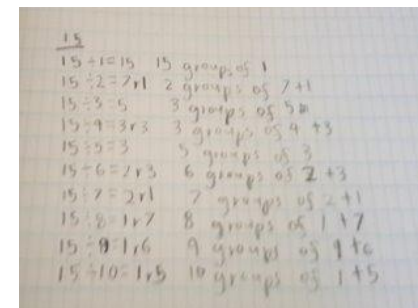 15
15÷1=15 15 groups of 1
15÷2=7r1 2 groups of 7+1
15÷3=5 3 groups of 5
15÷4=3r3 3 groups of 4 +3
15÷5=3 5 groups of 3
15÷6=2r3 6 groups of 2+3
15÷7=2r1 7 groups of 2+1
15÷8=1r7 8 groups of 1+7
15÷9=1r6 9 groups of 1+6
15÷10=1r5 10 groups of 1+5